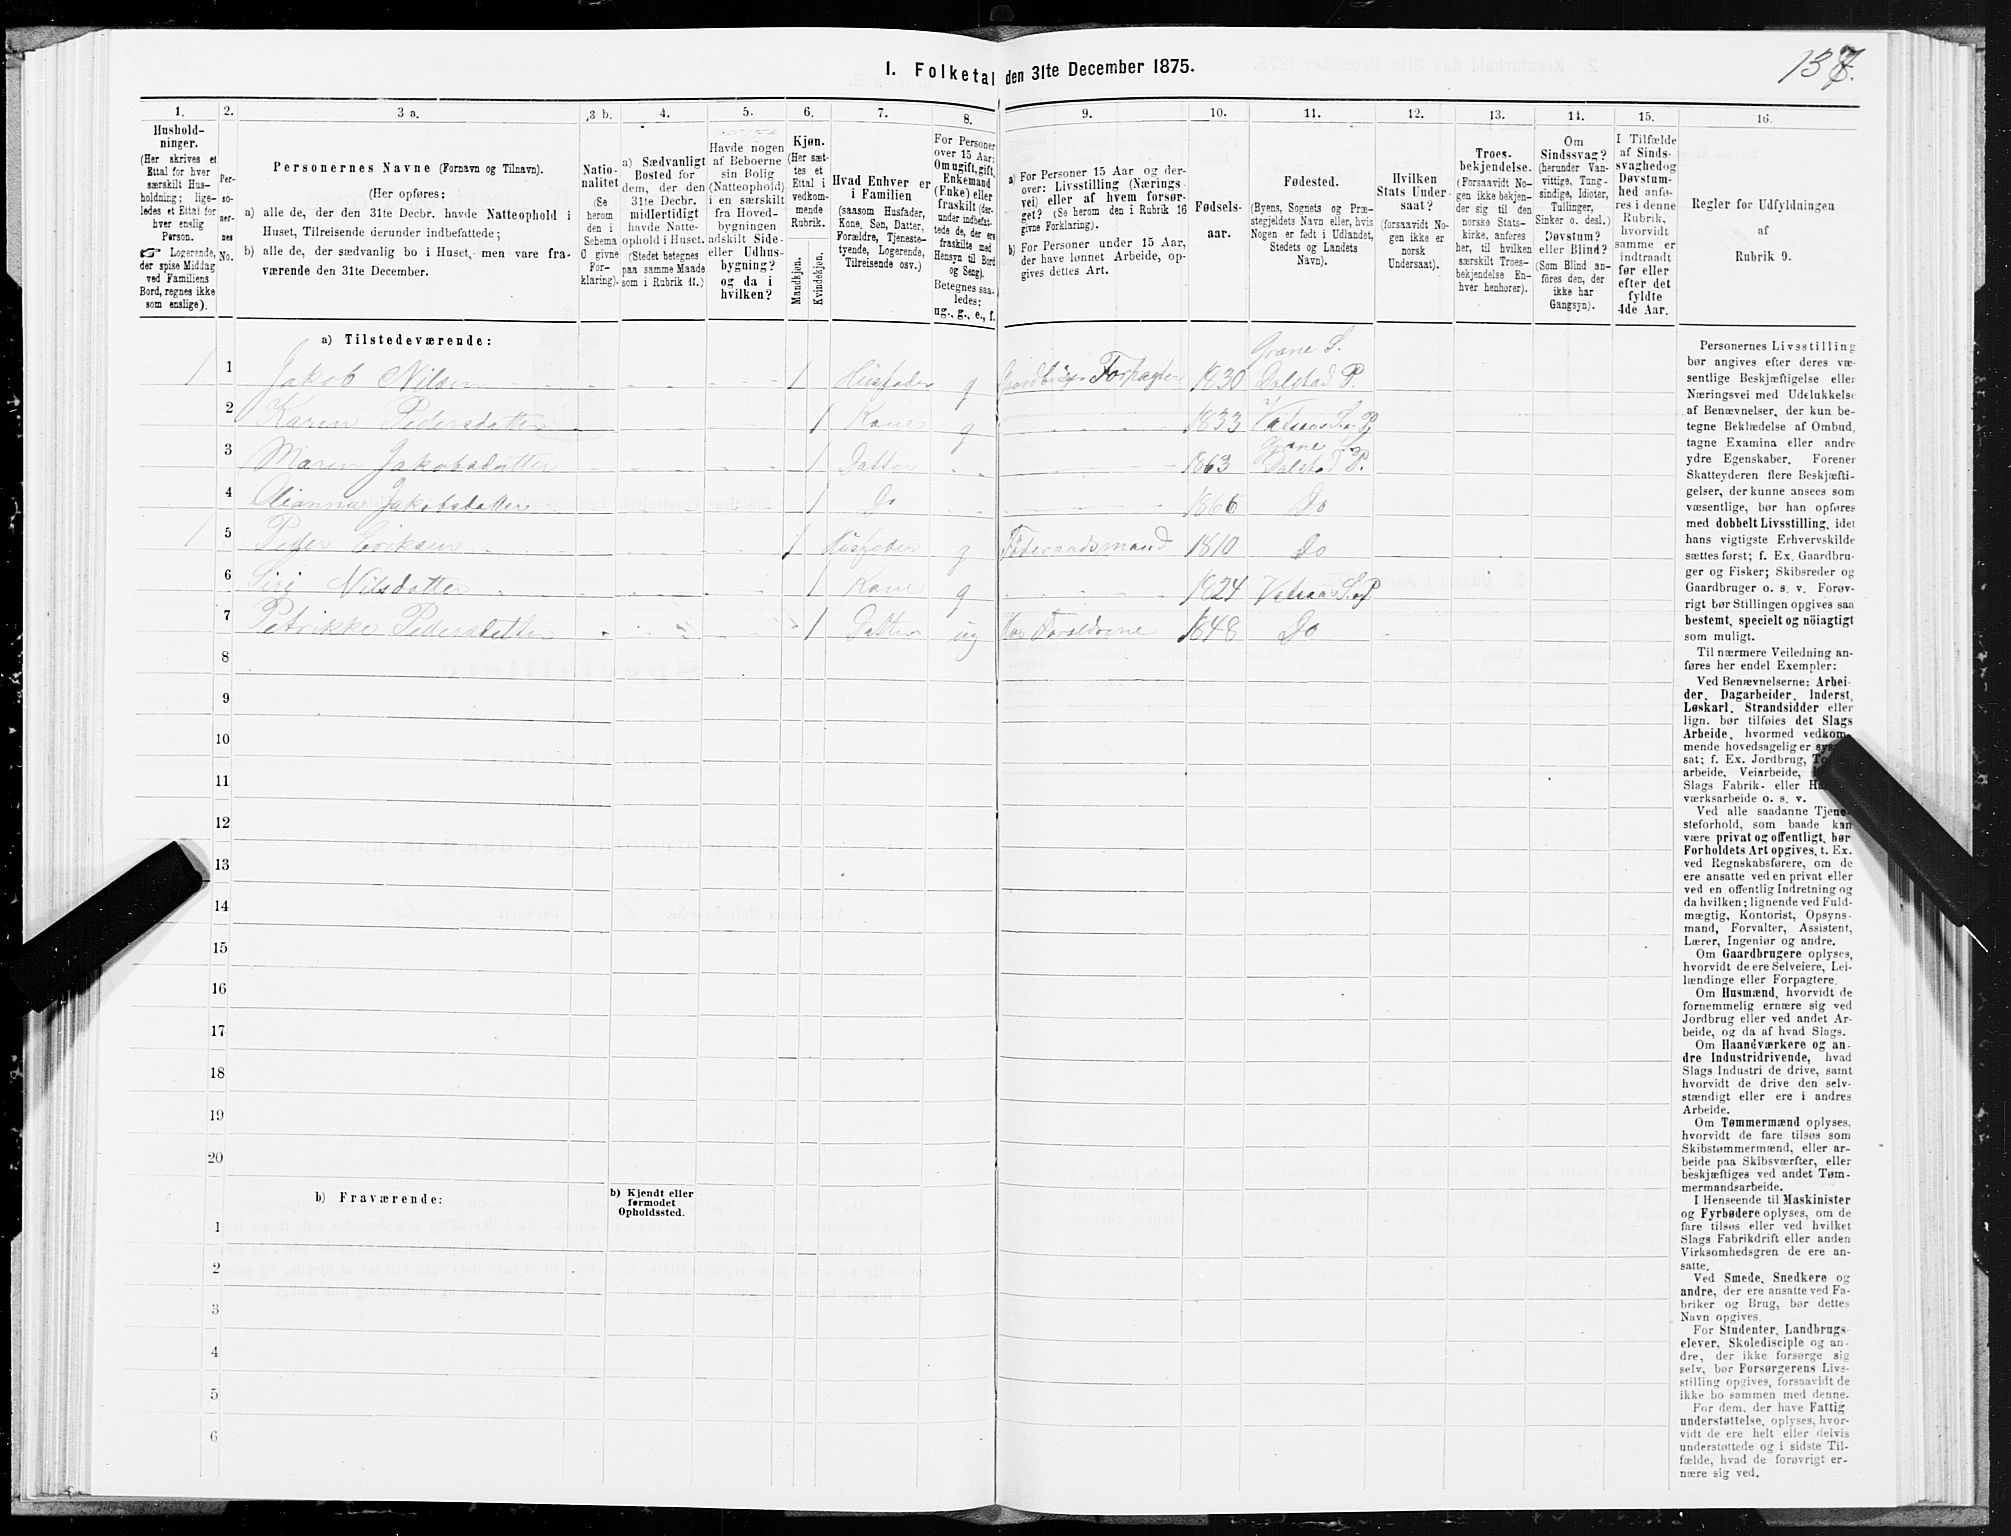 1. Folketal den 31te December 1875.
137.
1.
Hushold-
ninger.
(Her skrives et
Ettal for hver
særskilt Hus-
holdning; lige-
ledes et Ettal for
hver enslig
Person.
☞ Logerende,
der spise Middag
ved Familiens
Bord, regnes ikke
som enslige).
2.
Per-
so-
ner-
nes
No.
3 a.
Personernes Navne (Fornavn og Tilnavn).
(Her opføres:
a) alle de, der den 31te Decbr. havde Natteophold i
Huset, Tilreisende derunder indbefattede;
b) alle de, der sædvanlig bo i Huset, men vare fra-
værende den 31te December.
3 b.
Natio-
nalitet
(Se
herom
den i
Schema
C givne
For-
klaring).
4.
a) Sædvanligt
Bosted for
dem, der den
31te Decbr.
midlertidigt
havde Natte-
ophold i Huset.
(Stedet betegnes
paa samme Maade
som i Rubrik 11.)
5.
Havde nogen
af Beboerne
sin Bolig
(Natteophold)
i en særskilt
fra Hoved-
bygningen
adskilt Side-
eller Udhus-
bygning?
og da i
hvilken?
6.
Kjøn.
(Her sæt-
tes et
Ettal i
vedkom-
mende
Rubrik.
Mandkjøn.
Kvindekjøn.
7.
Hvad Enhver er
i Familien
(saasom Husfader,
Kone, Søn, Datter,
Forældre, Tjeneste-
tyende, Logerende,
Tilreisende osv.)
8.
For Personer
over 15 Aar:
Om ugift, gift,
Enkemand
(Enke) eller
fraskilt (der-
under indbefat-
tede de, der ere
fraskilte med
Hensyn til Bord
og Seng).
Betegnes saa-
ledes:
ug., g., e., f.
9.
a) For Personer 15 Aar og der-
over: Livsstilling (Nærings-
vei) eller af hvem forsør-
get? (Se herom den i Rubrik 16
givne Forklaring).
b) For Personer under 15 Aar,
der have lønnet Arbeide, op-
gives dettes Art.
10.
Fødsels-
aar.
11.
Fødested.
(Byens, Sognets og Præ-
stegjeldets Navn eller, hvis
Nogen er født i Udlandet,
Stedets og Landets
Navn).
12.
Hvilken
Stats Under-
saat?
(forsaavidt No-
gen ikke er
norsk
Undersaat).
13.
Troes-
bekjendelse.
(Forsaavidt No-
gen ikke bekjen-
der sig til den
norske Stats-
kirke, anføres
her, til hvilken
særskilt Troes-
bekjendelse En-
hver henhorer).
14.
Om
Sindssvag?
(herunder Van-
vittige, Tung-
sindige, Idioter,
Tullinger,
Sinker o. desl.)
Døvstum?
eller Blind?
(Som Blind an-
føres den, der
ikke har
Gangsyn).
15.
I Tilfælde
af Sinds-
svaghed og
Døvstum-
hed anfø-
res i denne
Rubrik,
hvorvidt
samme er
indtraadt
før eller
efter det
fyldte
4de Aar.
16.
Regler for Udfyldningen
af
Rubrik 9.
a) Tilstedeværende:
1 1 Jakob Nilsen 1 Husfader g Gaardbruger Forpagter 1830 Grane S. Dolstad P.
2 Karen Pedersdatter 1 Kone g 1833 Vefsens S. o P.
3 Maren Jakobsdatter 1 Datter 1863 Grane S. Dolstad P.
4 Jakobsdatter 1 Do 1866 Do
1 5 Peder Eriksen 1 Husfader g Föderaadsmand 1810 Do
6 Siri Nilsdatter 1 Kone g 1824 S. o P
7 Petrikke Pedersdatter 1 Datter ug Hos Forældrene 1848 Do
8
9
10
11
12
13
14
15
16
17
18
19
20
b) Fraværende:
b) Kjendt eller
formodet
Opholdssted.
1
2
3
4
5
6
Personernes Livsstilling
bør angives efter deres væ-
sentlige Beskjæftigelse eller
Næringsvei med Udelukkelse
af Benævnelser, der kun be-
tegne Beklædelse af Ombud,
tagne Examina eller andre
ydre Egenskaber. Forener
Skatteyderen flere Beskjæfti-
gelser, der kunne ansees som
væsentlige, bør han opføres
med dobbelt Livsstilling, idet
hans vigtigste Erhvervskilde
sættes først; f. Ex. Gaardbru-
ger og Fisker; Skibsreder og
Gaardbruger o. s. v. Forøv-
rigt bør Stillingen opgives saa
bestemt, specielt og nöiagtigt
som muligt.
Til nærmere Veiledning an-
føres her endel Exempler:
Ved Benævnelserne: Arbei-
der, Dagarbeider, Inderst,
Løskarl, Strandsidder eller
lign. bør tilføies det Slags
Arbeide, hvormed vedkom-
mende hovedsagelig er
sat; f. Ex. Jordbrug,
arbeide, Veiarbeide,
Slags Fabrik- eller
værksarbeide o. s. v.
Ved alle saadanne Tjene-
steforhold, som baade kan
være privat og offentligt, bør
Forholdets Art opgives, t. Ex.
ved Regnskabsførere, om de
ere ansatte ved en privat eller
ved en offentlig Indretning og
da hvilken; lignende ved Fuld-
mægtig, Kontorist, Opsyns-
mand, Forvalter, Assistent,
Lærer, Ingeniør og andre.
Om Gaardbrugere oplyses,
hvorvidt de ere Selveiere, Lei-
lændinge eller Forpagtere.
Om Husmænd, hvorvidt de
fornemmelig ernære sig ved
Jordbrug eller ved andet Ar-
beide, og da af hvad Slags.
Om Haandværkere og an-
dre Industridrivende, hvad
Slags Industri de drive, samt
hvorvidt de drive den selv-
stændigt eller ere i andres
Arbeide.
Om Tømmermænd oplyses,
hvorvidt de fare tilsøs som
Skibstømmermænd, eller ar-
beide paa Skibsværfter, eller
beskjæftiges ved andet Tøm-
mermandsarbeide.
I Henseende til Maskinister
og Fyrbødere oplyses, om de
fare tilsøs eller ved hvilket
Slags Fabrikdrift eller anden
Virksomhedsgren de ere an-
satte.
Ved Smede, Snedkere og
andre, der ere ansatte ved Fa-
briker og Brug, bør dettes
Navn opgives.
For Studenter, Landbrugs-
elever, Skoledisciple og an-
dre, der ikke forsørge sig
selv, bør Forsørgerens Livs-
stilling opgives, forsaavidt de
ikke bo sammen med denne.
For dem, der have Fattig
understøttelse, oplyses, hvor-
vidt de ere helt eller delvis
understøttede og i sidste Til-
fælde, hvad de forøvrigt er-
nære sig ved.